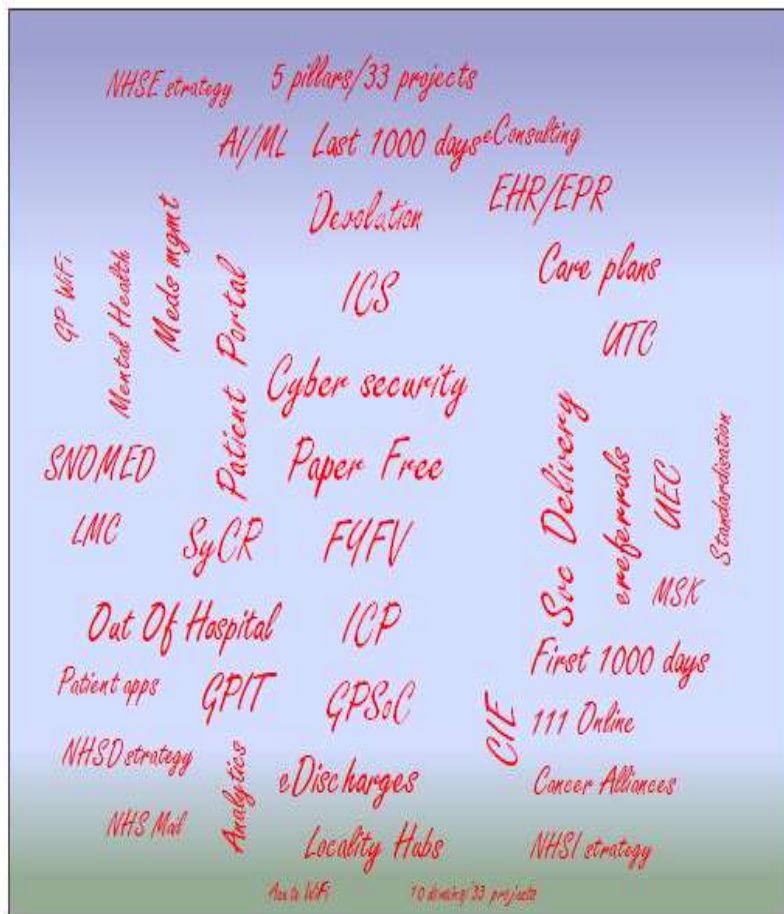 NHSE strategy
5 pillars/33 projects
AI/ML
Last 1000 days
eConsulting
EHR/EPR
Devolution
Care plans
GP WiFi
Mental Health
Meds mgmt
Patient Portal
ICS
UTC
Cyber security
SNOMED
Paper Free
Svc Delivery
ereferrals
UEC
Standardisation
LMC
SyCR
FYFV
MSK
Out Of Hospital
ICP
First 1000 days
Patient apps
GPIT
GPSoC
CIE
111 Online
NHSD strategy
Analytics
eDischarges
Cancer Alliances
NHS Mail
Locality Hubs
NHSI strategy
Acute WiFi
10 /33 projects